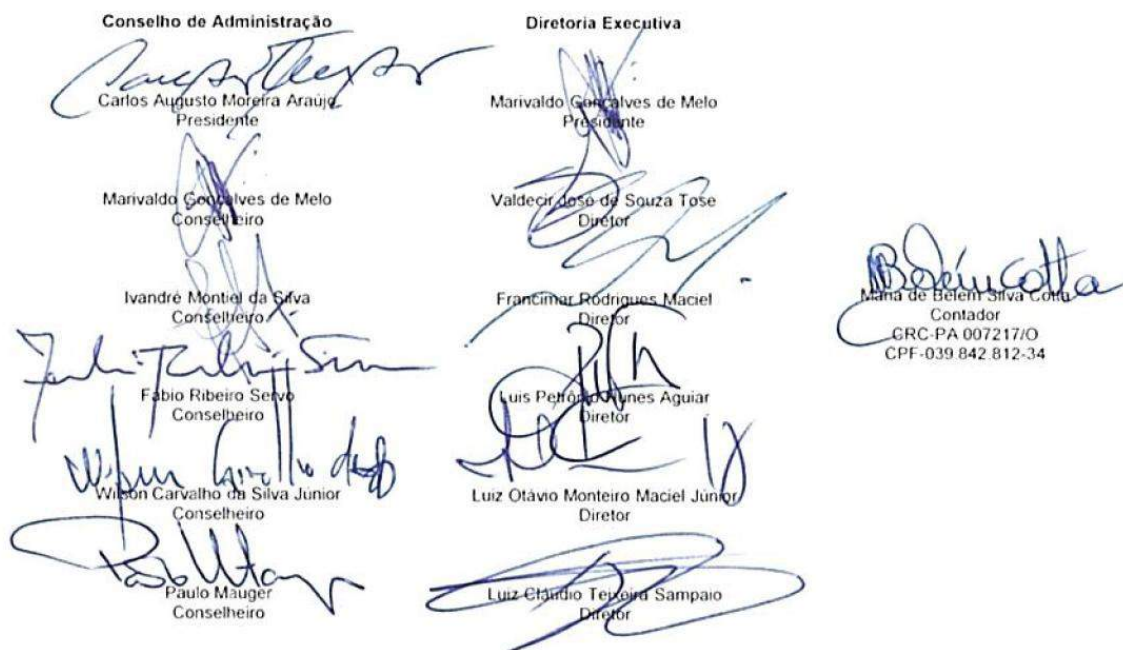 Conselho de Administração
Carlos Augusto Moreira Araújo
Presidente
Marivaldo Gonçalves de Melo
Conselheiro
Ivandré Montiel da Silva
Conselheiro
Fábio Ribeiro Servo
Conselheiro
Wilson Carvalho da Silva Júnior
Conselheiro
Paulo Mauger
Conselheiro
Diretoria Executiva
Marivaldo Gonçalves de Melo
Presidente
Valdecir José de Souza Tose
Diretor
Francimar Rodrigues Maciel
Diretor
Luis Petrônio Nunes Aguiar
Diretor
Luiz Otávio Monteiro Maciel Júnior
Diretor
Luiz Cláudio Teixeira Sampaio
Diretor
Maria de Belém Silva Cotta
Contador
CRC-PA 007217/O
CPF-039.842.812-34